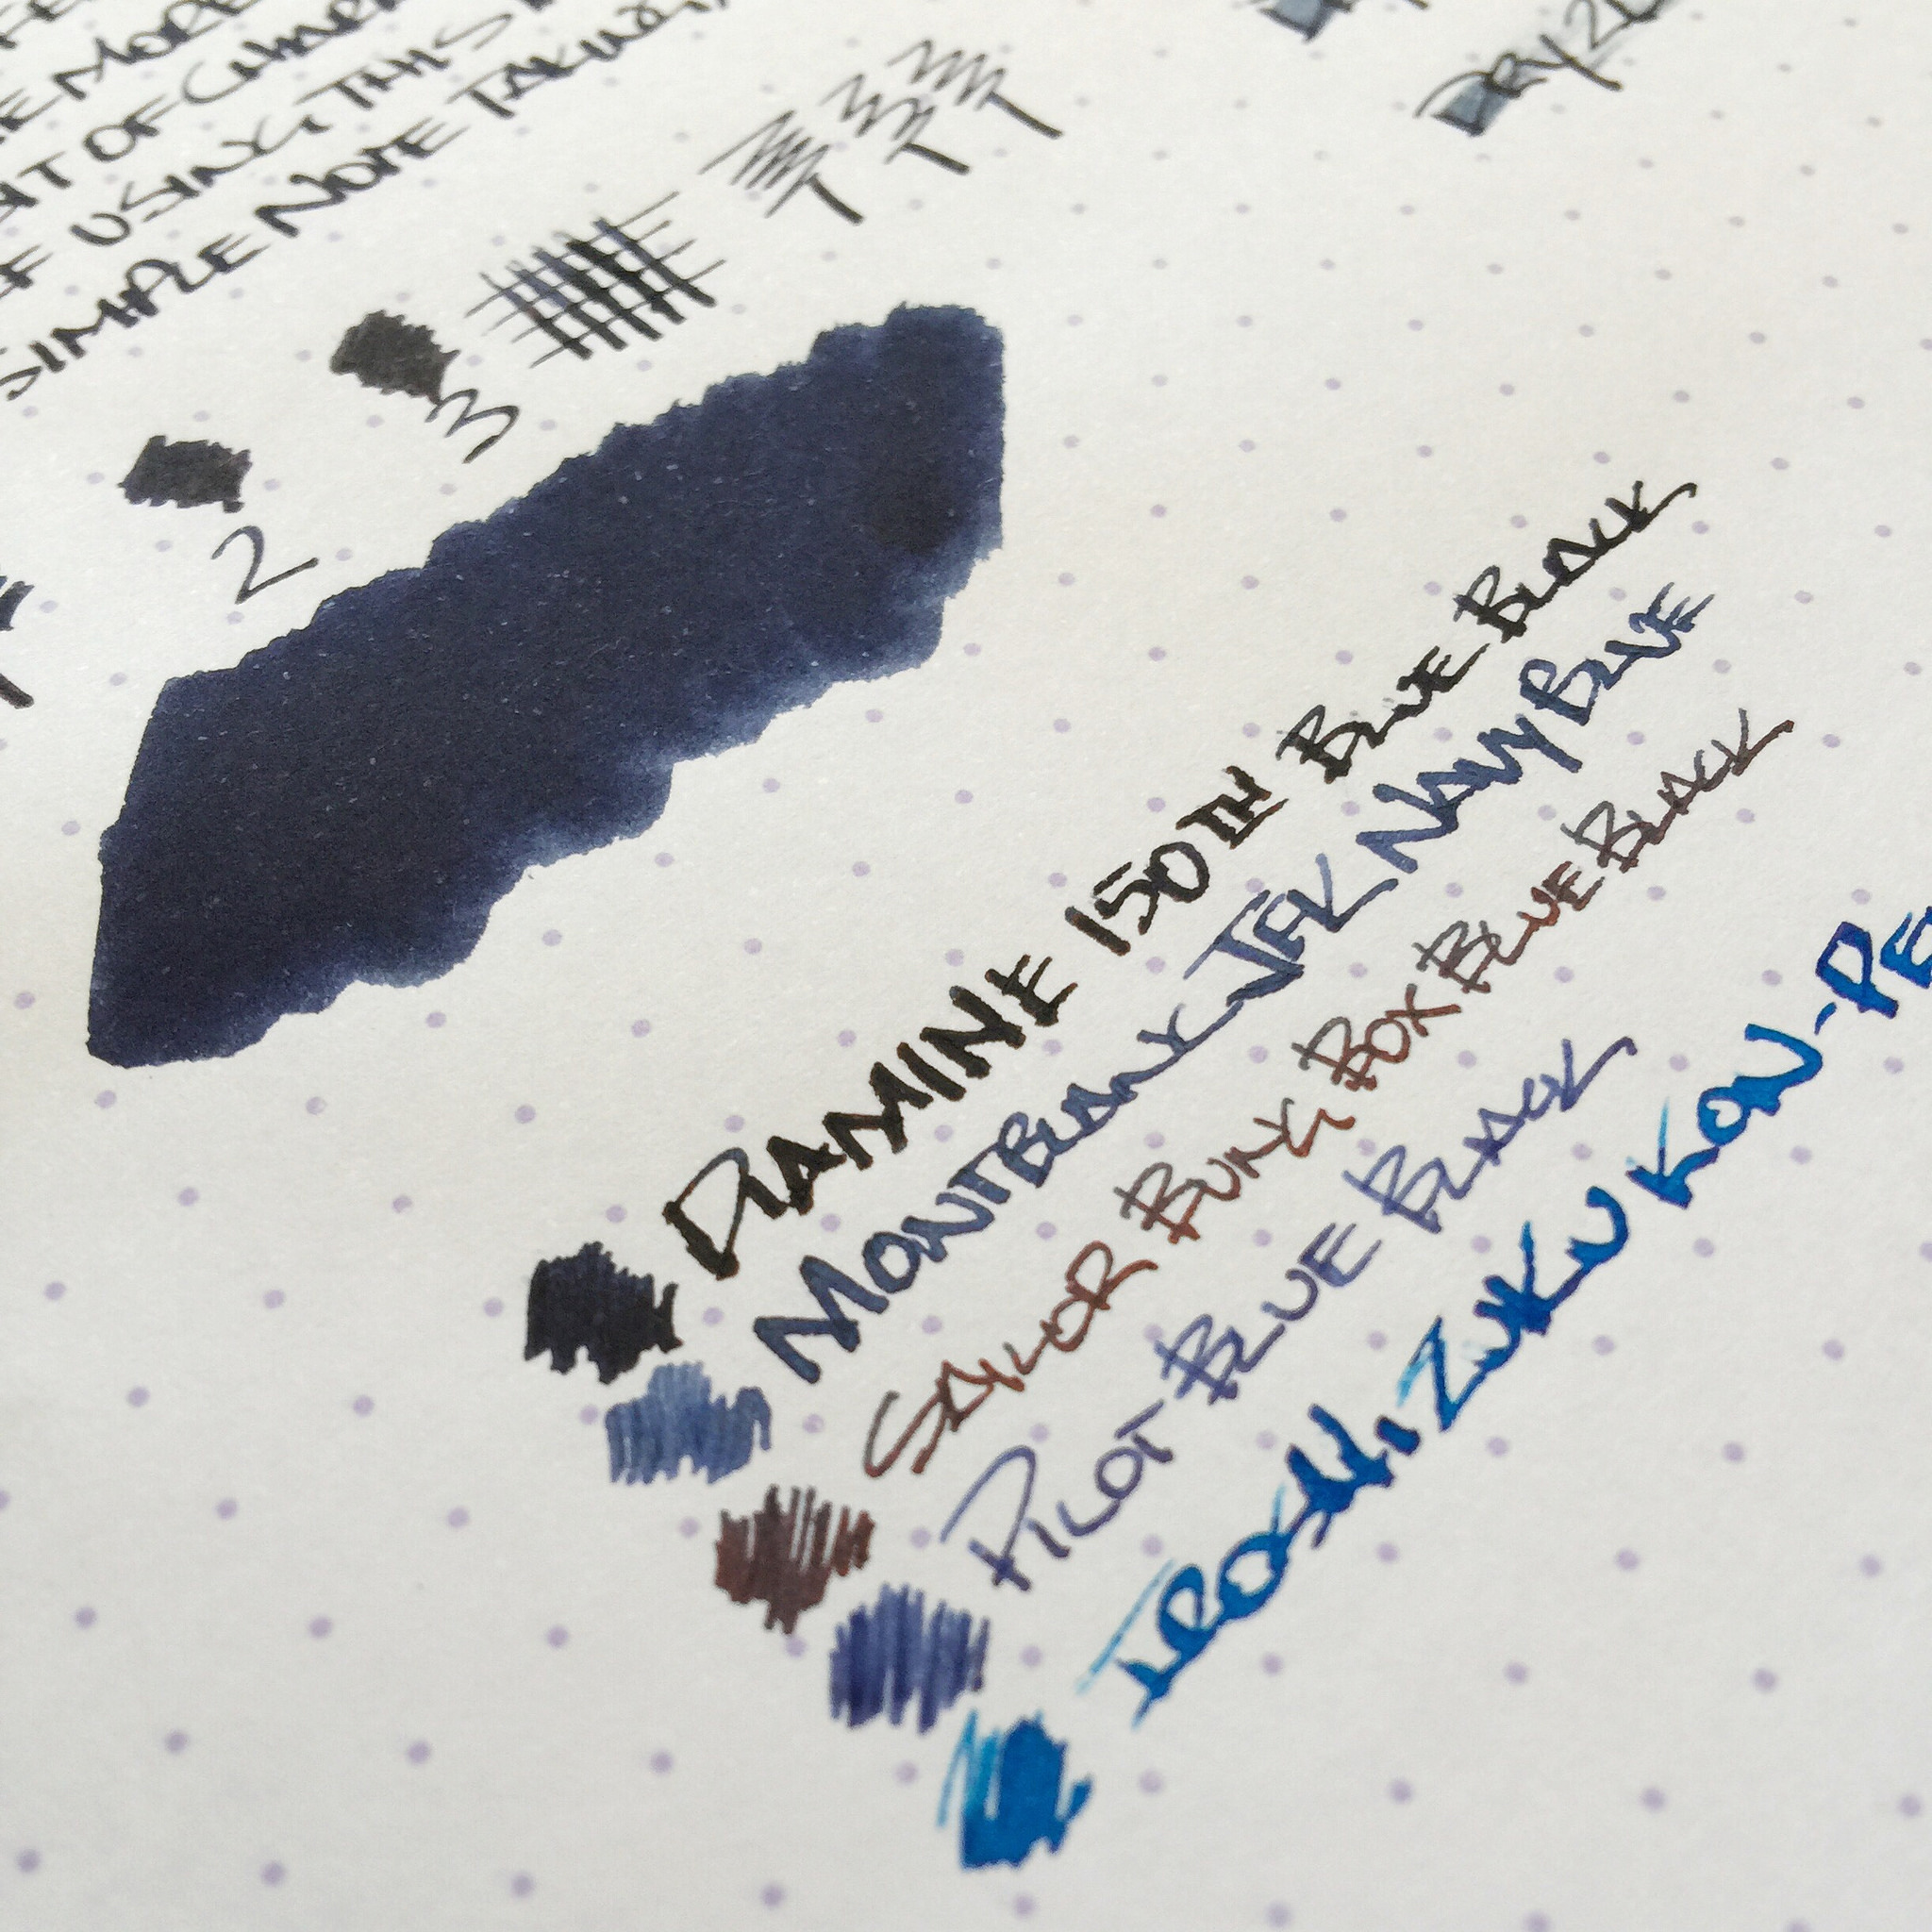 MORE
NT OF
F USING THIS
SIMPLE NOTE TAKING,
DRY
3
2
DIAMINE 150TH BLUE BLACK
MONTBLANC JFK NAVY BLUE
SAILOR BUNG BOX BLUE BLACK
PILOT BLUE BLACK
IROSHIZUKU KON-PE